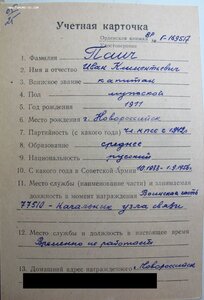 Учетная карточка
Орденская книжка № Г-169517
Удостоверение
1. Фамилия Паич
2. Имя и отчество Иван Климентьевич
3. Воинское звание капитан
4. Пол мужской
5. Год рождения 1911
6. Место рождения г. Новороссийск
7. Партийность (с какого года) чл. КПСС с 1942г.
8. Образование среднее
9. Национальность русский
10. С какого года в Советской Армии 10.1933 - 1.9.1956.
11. Место службы (наименование части) и занимаемая
должность в момент награждения Воинская часть
77510 - Начальник узла связи
12. Место службы и должность в настоящее время
Временно не работает
13. Домашний адрес награжденного г. Новороссийск